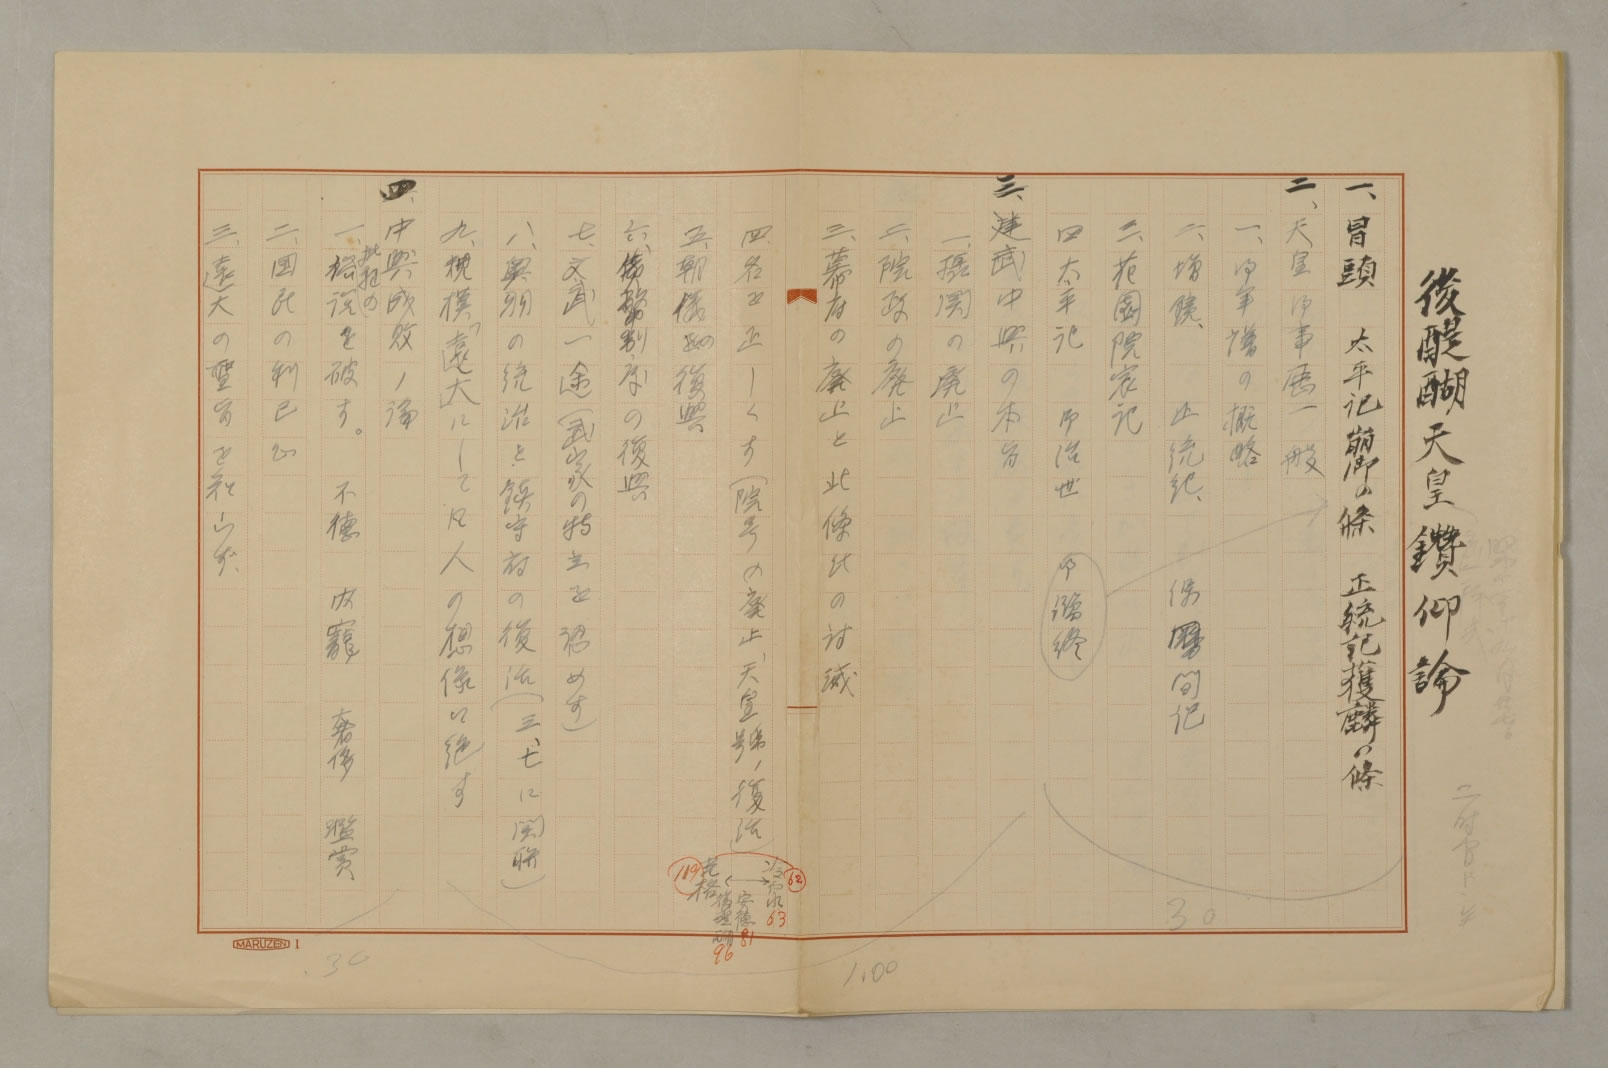 後醍醐天皇鑽仰論
一、冒頭　太平記崩御の條　正統記獲麟の條
二、天皇御事歴一般
一、御事蹟の概略
二、増鏡、正統紀、保暦間記
三、花園院宸記
四、太平記　御治世　御臨終
三、建武中興の本旨
一、摂関の廃止
二、院政の廃止
三、幕府の廃止と北條氏の討滅
四、名を正しくす（院号の廃止、天皇号ノ復活）
五、朝儀の復興
六、の復興
七、文武一途（武家の特立を認めず）
八、奥羽の統治と鎮守府の復活（三、七に関聯）
九、規模「遠大」にして凡人の想像に絶す
四、中興成敗ノ論
一、俗説を破す。　不徳　内寵　奢侈　濫賞
批判の
二、国民の利己心
三、遠大の聖旨を
冷泉 62
63
安徳 81
後醍醐 96
光格 119
30
1.00
.30
MARUZEN 1